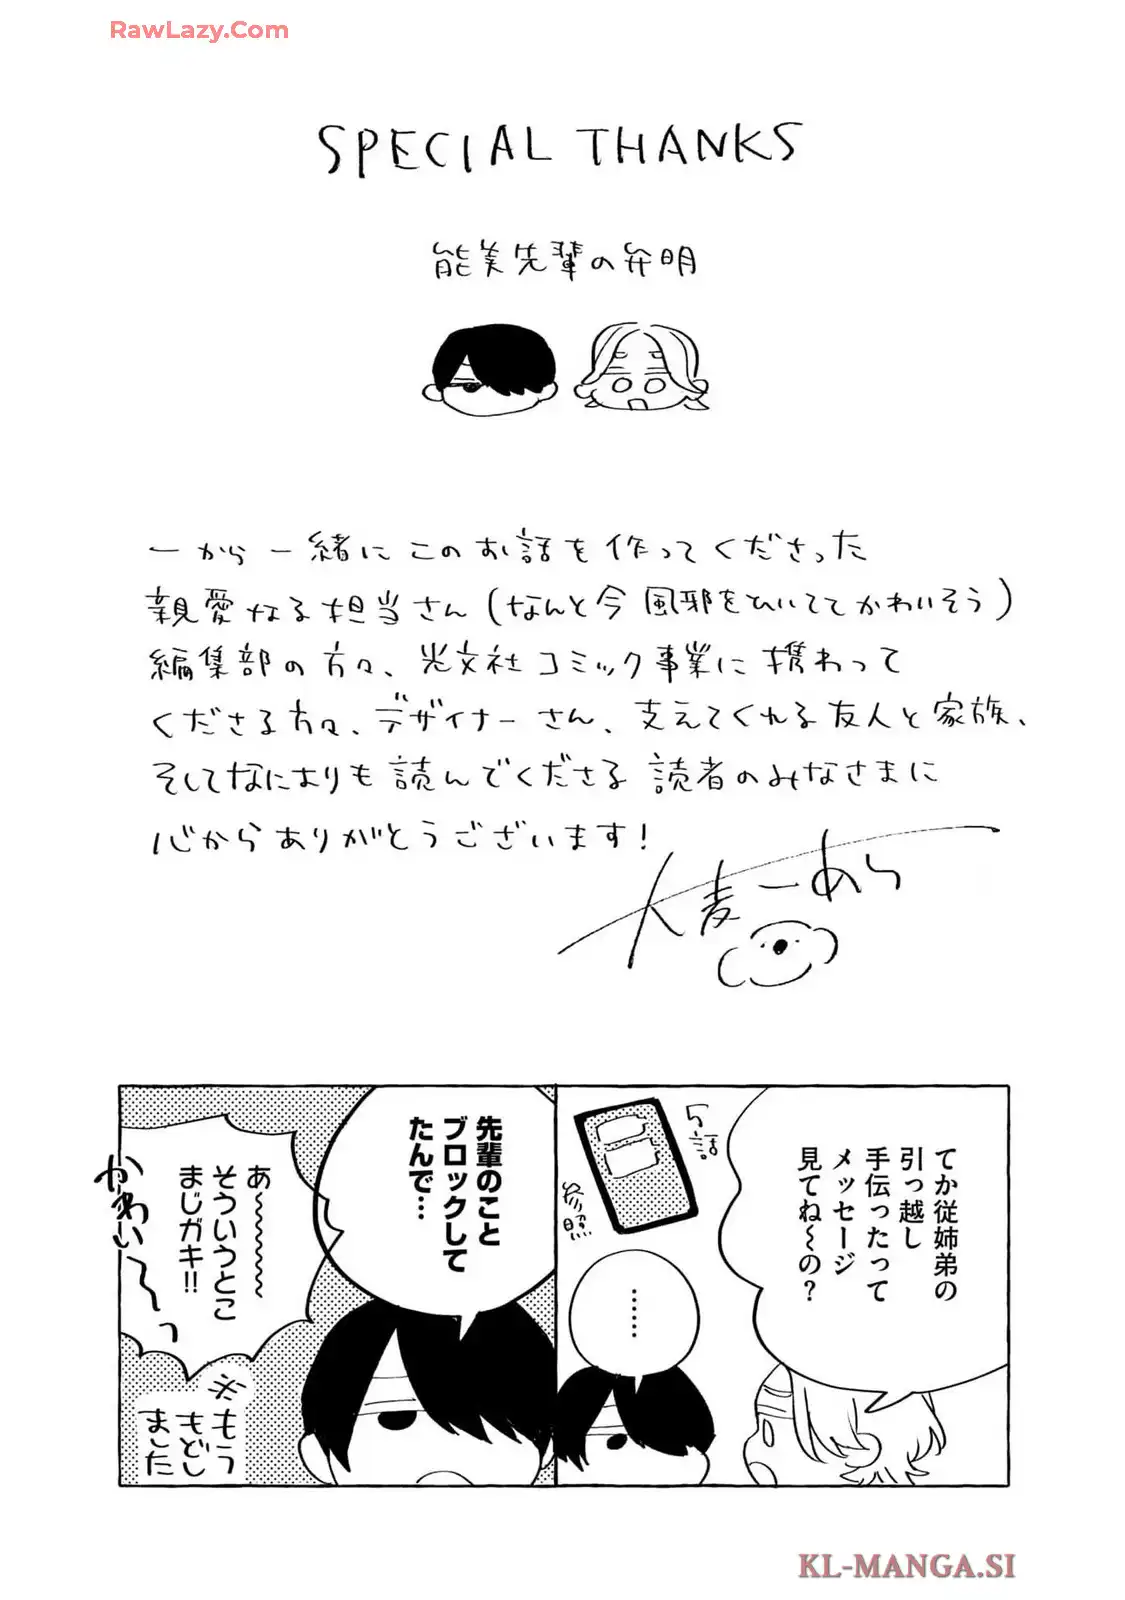 RawLazy.Com
SPECIAL THANKS
能美先輩の弁明
一から一緒にこのお話を作ってくださった
親愛なる担当さん(なんと今風邪をひいててかわいそう)
編集部の方々、光文社コミック事業に携わって
くださる方々、デザイナーさん、支えてくれる友人と家族、
そしてなによりも読んでくださる読者のみなさまに
心からありがとうございます!
大麦一あら
てか従姉弟の
引っ越し
手伝ったって
メッセージ
見てね〜の?
5話
参照
……
先輩のこと
ブロックして
たんで…
あ〜〜〜〜
そういうとこ
まじガキ!!
かわい〜っ
※もう
もどし
ました
KL-MANGA.SI